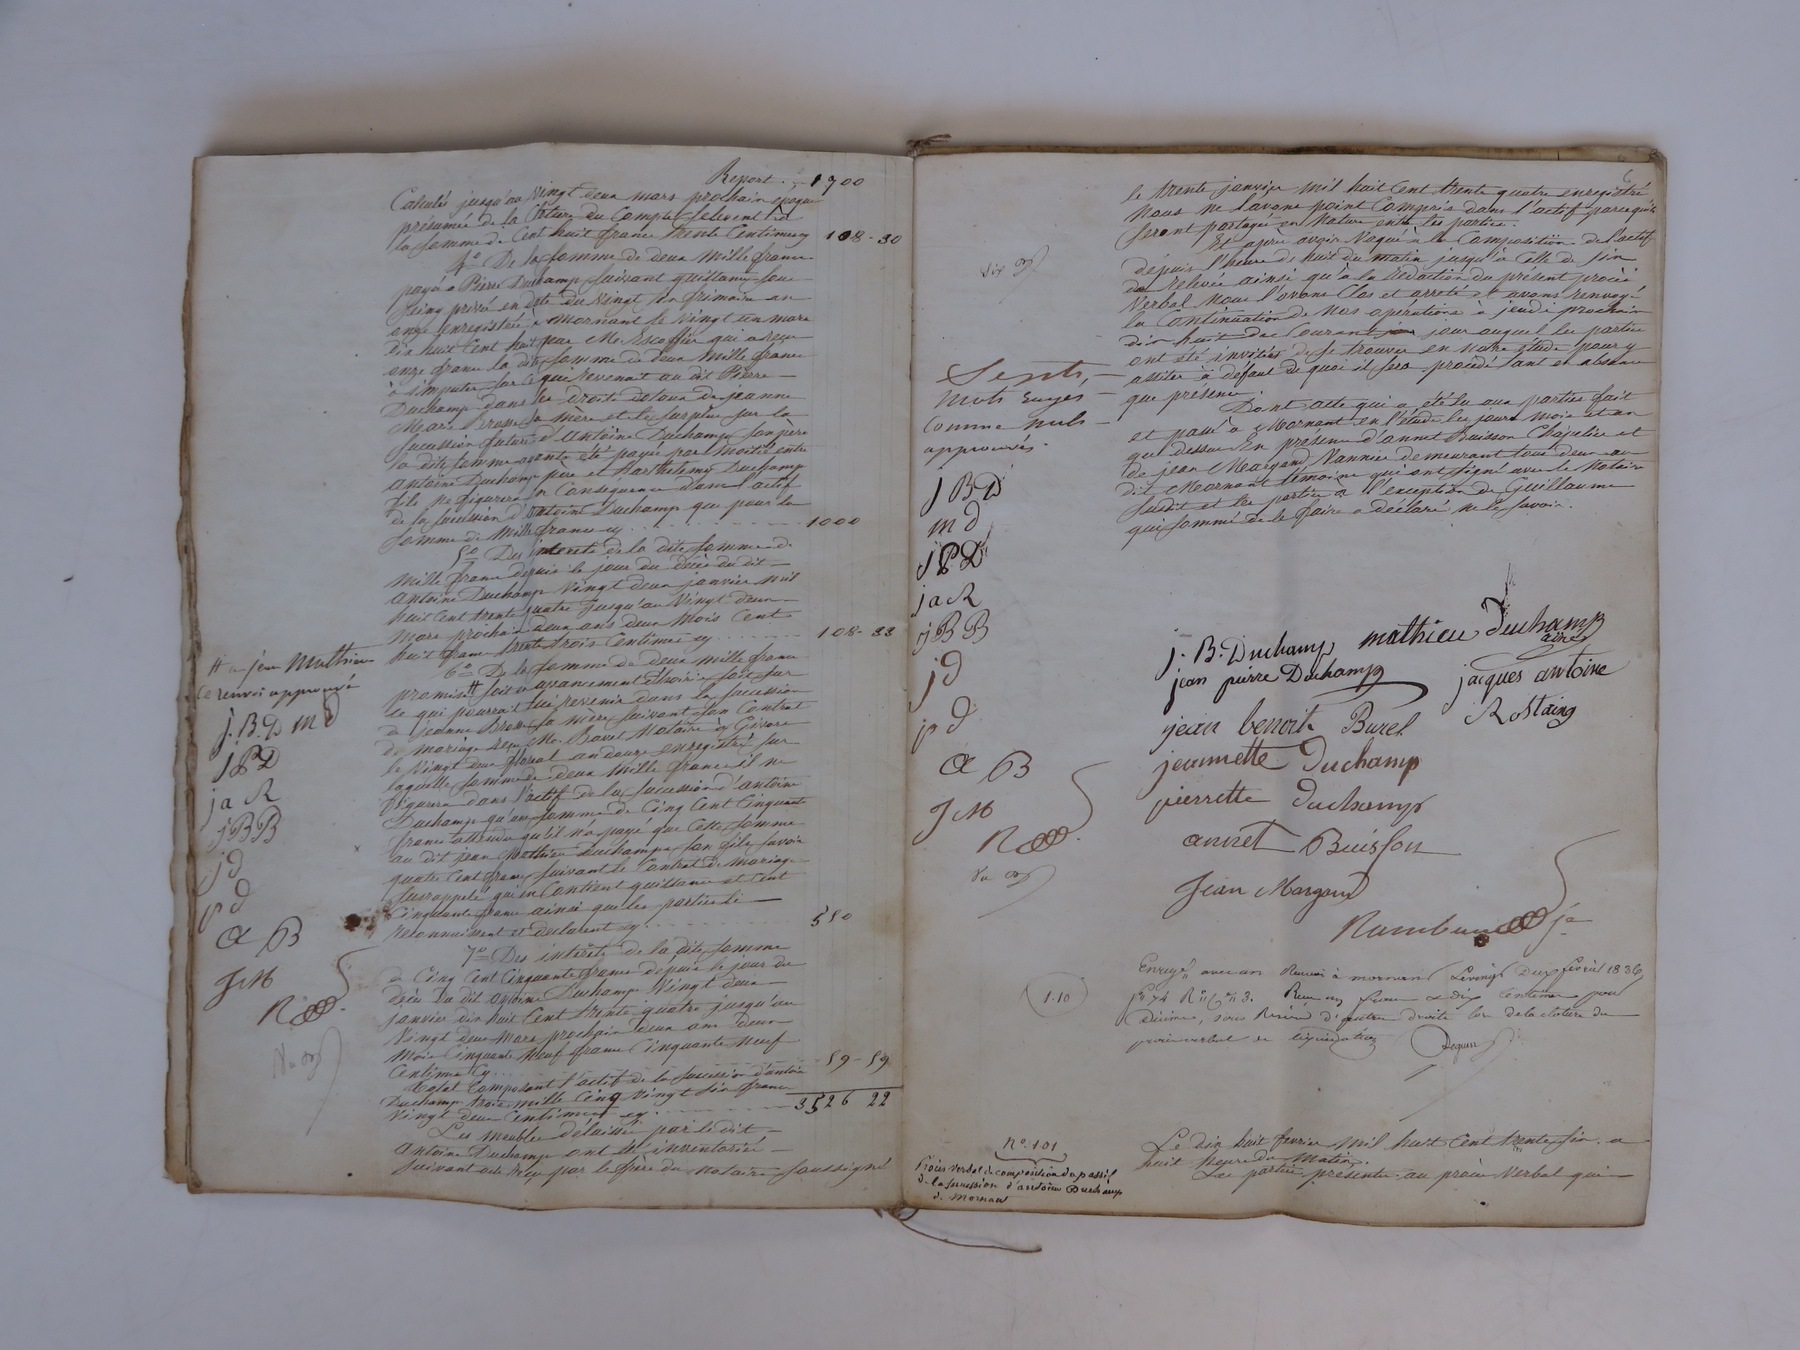 Report . . . 1700
Calculé jusqu'au vingt deux mars prochain époque
présumée de la Cloture du Compte s'elevent à
la somme de Cent huit francs trente Centimes cy 108 - 30
4º De la somme de deux mille francs
payée à Pierre Duchamp suivant quittance sous
seing privé en date du vingt un frimaire an
onze enregistrée à Mornant le vingt un mars
dix huit Cent huit par Me Escoffier qui a reçu
onze francs la dite somme de deux mille francs
à s'imputer sur ce qui revenait au dit Pierre
Duchamp dans les droits de jeanne
Marie Brosse sa mère et le surplus sur la
succession future d'Antoine Duchamp son père
la dite somme ayant été payée par moitié entre
antoine Duchamp père et Barthelemy Duchamp
fils ne figurera en Conséquence dans l'actif
de la succession d'antoine Duchamp que pour la
somme de Mille francs cy . . . 1000
5º Des interets de la dite somme de
Mille francs depuis le jour du décès du dit
antoine Duchamp vingt deux janvier mil
huit Cent trente quatre jusqu'au vingt deux
mars prochain deux ans deux mois Cent
huit francs trente trois Centimes cy . . . 108 - 33
6º De la somme de deux mille francs
promise # soit en avancement d'hoirie soit sur
ce qui pourrait lui revenir dans la succession
de Jeanne Brosse sa mère suivant son Contrat
de mariage reçu Me Bavet Notaire à Givors
le vingt deux floréal an douze enregistré sur
laquelle somme de deux mille francs il ne
figurera dans l'actif de la succession d'antoine
Duchamp qu'une somme de Cinq Cent Cinquante
francs attendu qu'il n'a payé que cette somme
au dit jean Mathieu Duchamp son fils savoir
quatre Cent francs suivant le Contrat de mariage
susrappelé qui en Contient quittance et Cent
Cinquante francs ainsi que les parties le
reconnaissent et declarent cy . . . 550
7º Des intérêts de la dite somme
de Cinq Cent Cinquante francs depuis le jour du
décès du dit antoine Duchamp vingt deux
janvier dix huit Cent trente quatre jusqu'au
vingt deux Mars prochain deux ans deux
mois Cinquante neuf francs Cinquante neuf
Centimes Cy . . . 59 - 59
Total Composant l'actif de la succession d'antoine
Duchamp trois mille Cinq vingt six francs
vingt deux Centimes cy . . . 3526 22
Les meubles délaissés par le dit
antoine Duchamp ont été inventoriés
suivant acte reçu par le père du notaire soussigné
# a jean Mathieu
Ce renvoi approuvé
j. B. D m d
j P D
j a R
j B B
j d
p d
a B
J M
R
6
le trente janvier mil huit Cent trente quatre enregistré
Nous ne l'avons point Compris dans l'actif parce qu'ils
seront partagés en Nature entre les parties.
Et après avoir vaqué à la Composition de l'actif
depuis l'heure de huit du matin jusqu'à celle de six
de relevée ainsi qu'à la rédaction du présent procès
verbal Nous l'avons Clos et arrêté et avons renvoyé
la Continuation de Nos opérations à jeudi prochain
dix huit du Courant jour auquel les parties
ont été invitées de se trouver en notre étude pour y
assister à défaut de quoi il sera procédé tant en absence
que présence.
Dont acte qui a été lu aux parties fait
et passé à Mornant en l'étude les jours mois et an
que dessus En présence d'annet Buisson Chapelier et
de jean Margand Vannier demeurant tous deux au
dit Mornant témoins qui ont signé avec le Notaire
susdit et les parties à l'exception de Guillaume
qui sommé de le faire a déclaré ne le savoir.
Septs
mots rayés
Comme nuls
approuvés.
j B D
m d
j P D
j a R
j B B
j d
p d
a B
J M
R
j. B. Duchamp mathieu Duchamp
ainé
jean pierre Duchamp jacques antoine
Rostaing
jean benoit Burel
jeannette Duchamp
pierrette duchamp
annet Buisson
Jean Margand
1.10
Enregé avec un Renvoi à mornant Le vingt Deux fevrier 1836,
fº 74 Rº Cⁿ 3. Reçu un franc & dix Centimes pour
Décime, sous Réserve d'autres droits lors de la cloture du
procès verbal de liquidation
Nº. 101
Procès verbal de composition du passif
de la succession d'antoine Duchamp
de Mornant
Le dix huit fevrier mil huit Cent trente six à
huit heures du Matin.
Les parties présentes au procès verbal qui